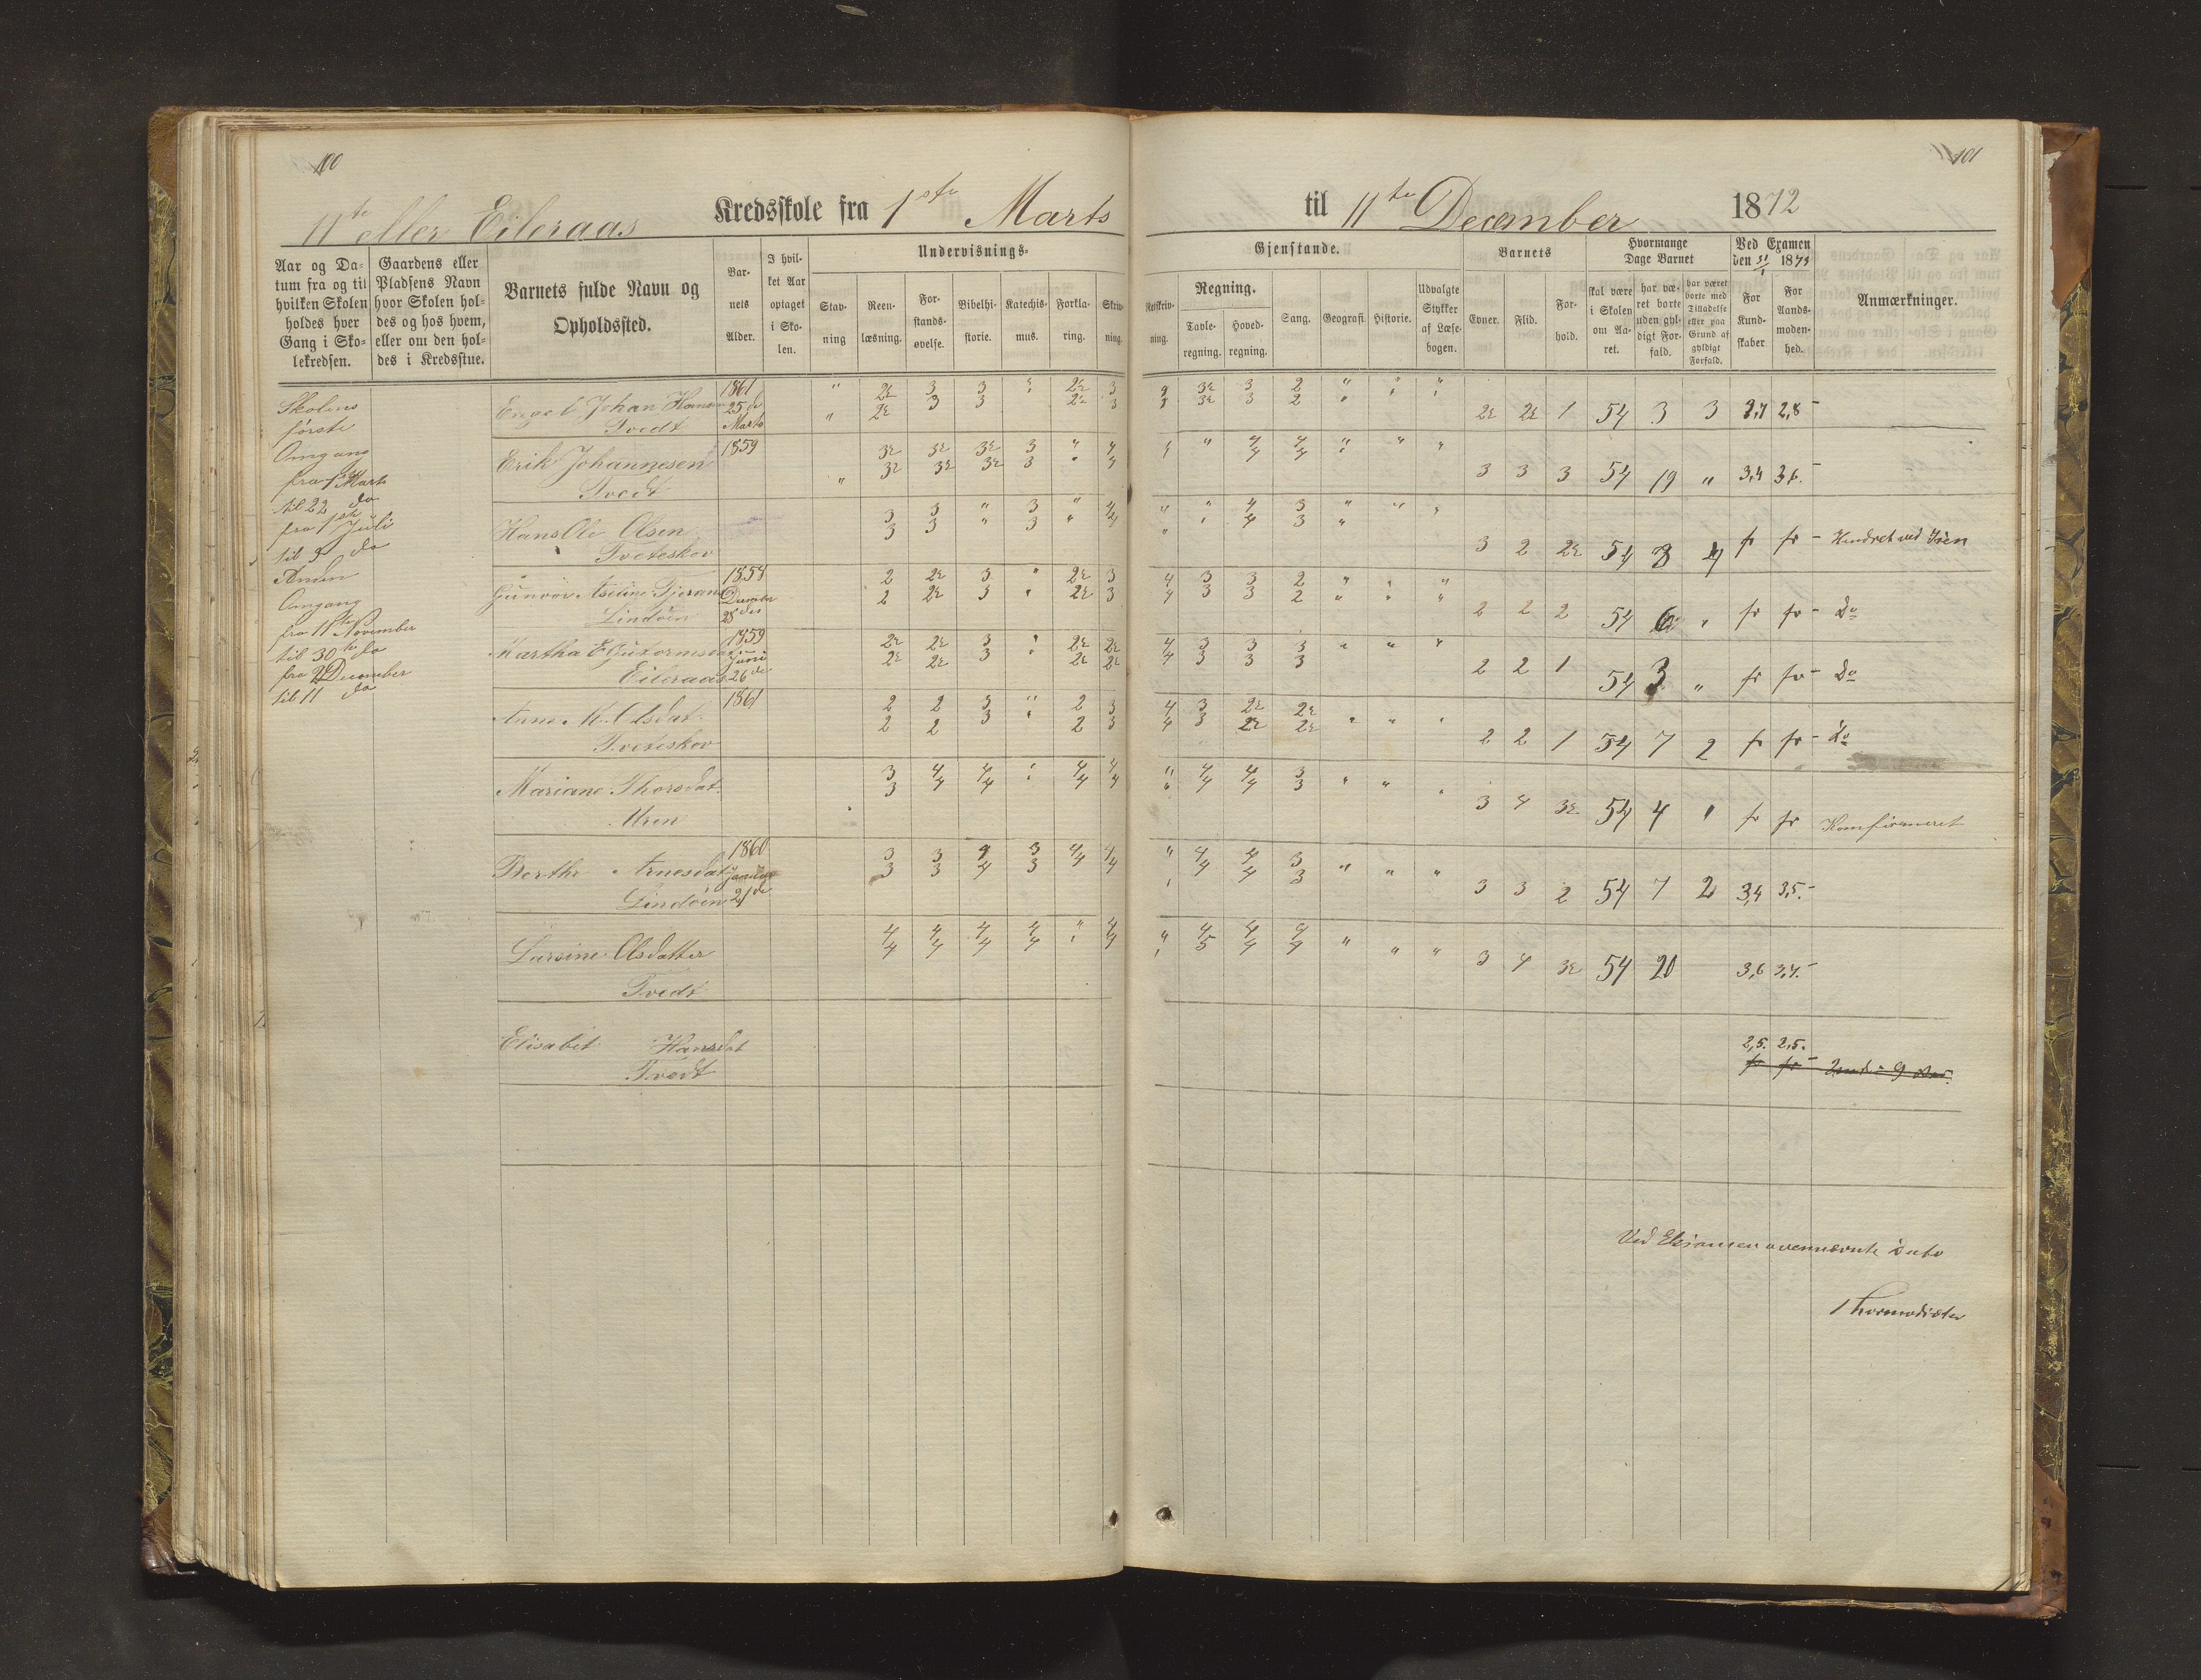 100
11te eller Eileraas Kredsskole fra 1ste Marts
Aar og Da-
tum fra og til
hvilken Skolen
holdes hver
Gang i Sko-
lekredsen.
Gaardens eller
Pladsens Navn
hvor Skolen hol-
des og hos hvem,
eller om den hol-
des i Kredsstue.
Barnets fulde Navn og
Opholdssted.
Bar-
nets
Alder.
I hvil-
ket Aar
optaget
i Sko-
len.
Undervisnings-
Stav-
ning
Reen-
læsning.
For-
stands-
øvelse.
Bibelhi-
storie.
Katechis-
mus.
Forkla-
ring.
Skriv-
ning.
Skolens
første
Omgang
fra 1ste Marts
til 22 do
fra 1ste Juli
til 5 do
Anden
Omgang
fra 11te November
til 30te do
fra 2 December
til 11 do
Engel Johan Hansen 1861 25de Marts " 2½ 3 3 " 2½ 3
Tvedt " 2½ 3 3 " 2½ 3
Erik Johannesen 1859 3½ 3½ 3½ 3 " 4
Tvedt " 3½ 3½ 3½ 3 " 4
Hans Ole Olsen 3 3 " 3 " 4
Tveteskov 3 3 " 3 " 4
Gunvor 1858 December 28des 2 2½ 3 " 2½ 3
Lindöen 2 2½ 3 " 2½ 3
Martha E Gutormsdat 1859 Juni 26de 2½ 2½ 3 " 2½ 2½
Eileraas 2½ 2½ 3 2½ 2½
Anne M. Olsdat. 1861 2 2 3 " 2 3
Tveteskov 2 2 3 " 2 3
Mariane Thorsdat. 3 4 4 " 4 4
Uren 3 4 4 " 4 4
Berthe Arnesdat 1860 Januar 21de 3 3 4 3 4 4
Lindöen 3 3 4 3 4 4
Larsine Olsdatter 4 4 4 4 " 4
Tvedt 4 4 4 4 " 4
Elisabet Hansdat
Tvedt
101
til 11te December 1872
Gjenstande.
Retskriv-
ning.
Regning.
Tavle-
regning.
Hoved-
regning.
Sang.
Geografi.
Historie.
Udvalgte
Stykker
af Læse-
bogen.
Barnets
Evner.
Flid.
For-
hold.
Hvormange
Dage Barnet
skal være
i Skolen
om Aa-
ret.
har væ-
ret borte
uden gyl-
digt For-
fald.
har været
borte med
Tilladelse
eller paa
Grund af
gyldigt
Forfald.
Ved Examen
den 31/1 1873
For
Kund-
skaber
For
Aands-
moden-
hed.
Anmærkninger.
3 3½ 3 2 " " "
3 3½ 3 2 "
2½ 2½ 1 54 3 3 2,7 2,8
" 4 4 " " "
4 4
3 3 3 54 19 " 3,4 3,6.
" " 4 3 " " "
" " 4 3 "
3 2 2½ 54 8 4 fr fr Hindret ved Iisen
4 3 3 2 " " "
4 3 3 2 " " "
2 2 2 54 6 " fr fr Do
4 3 3 3 " " "
4 3 3 3
2 2 1 54 3 " fr fr Do
4 3 2½ 2½
4 3 2½ 2½ " " "
2 2 1 54 7 2 fr fr Do
" 4 4 3
" 4 4 3 " " "
3 4 3½ 54 4 " fr fr Komfirmeret
" 4 4 3
" 4 4 3 " " "
3 3 2 54 7 2 3,4 3,5.
" 4 4 4
" 5 4 4 " " "
3 4 3½ 54 20 3,6 3,4.
2,5. 2,5.
fr fr
Ved Eksamen ovennævnte Dato